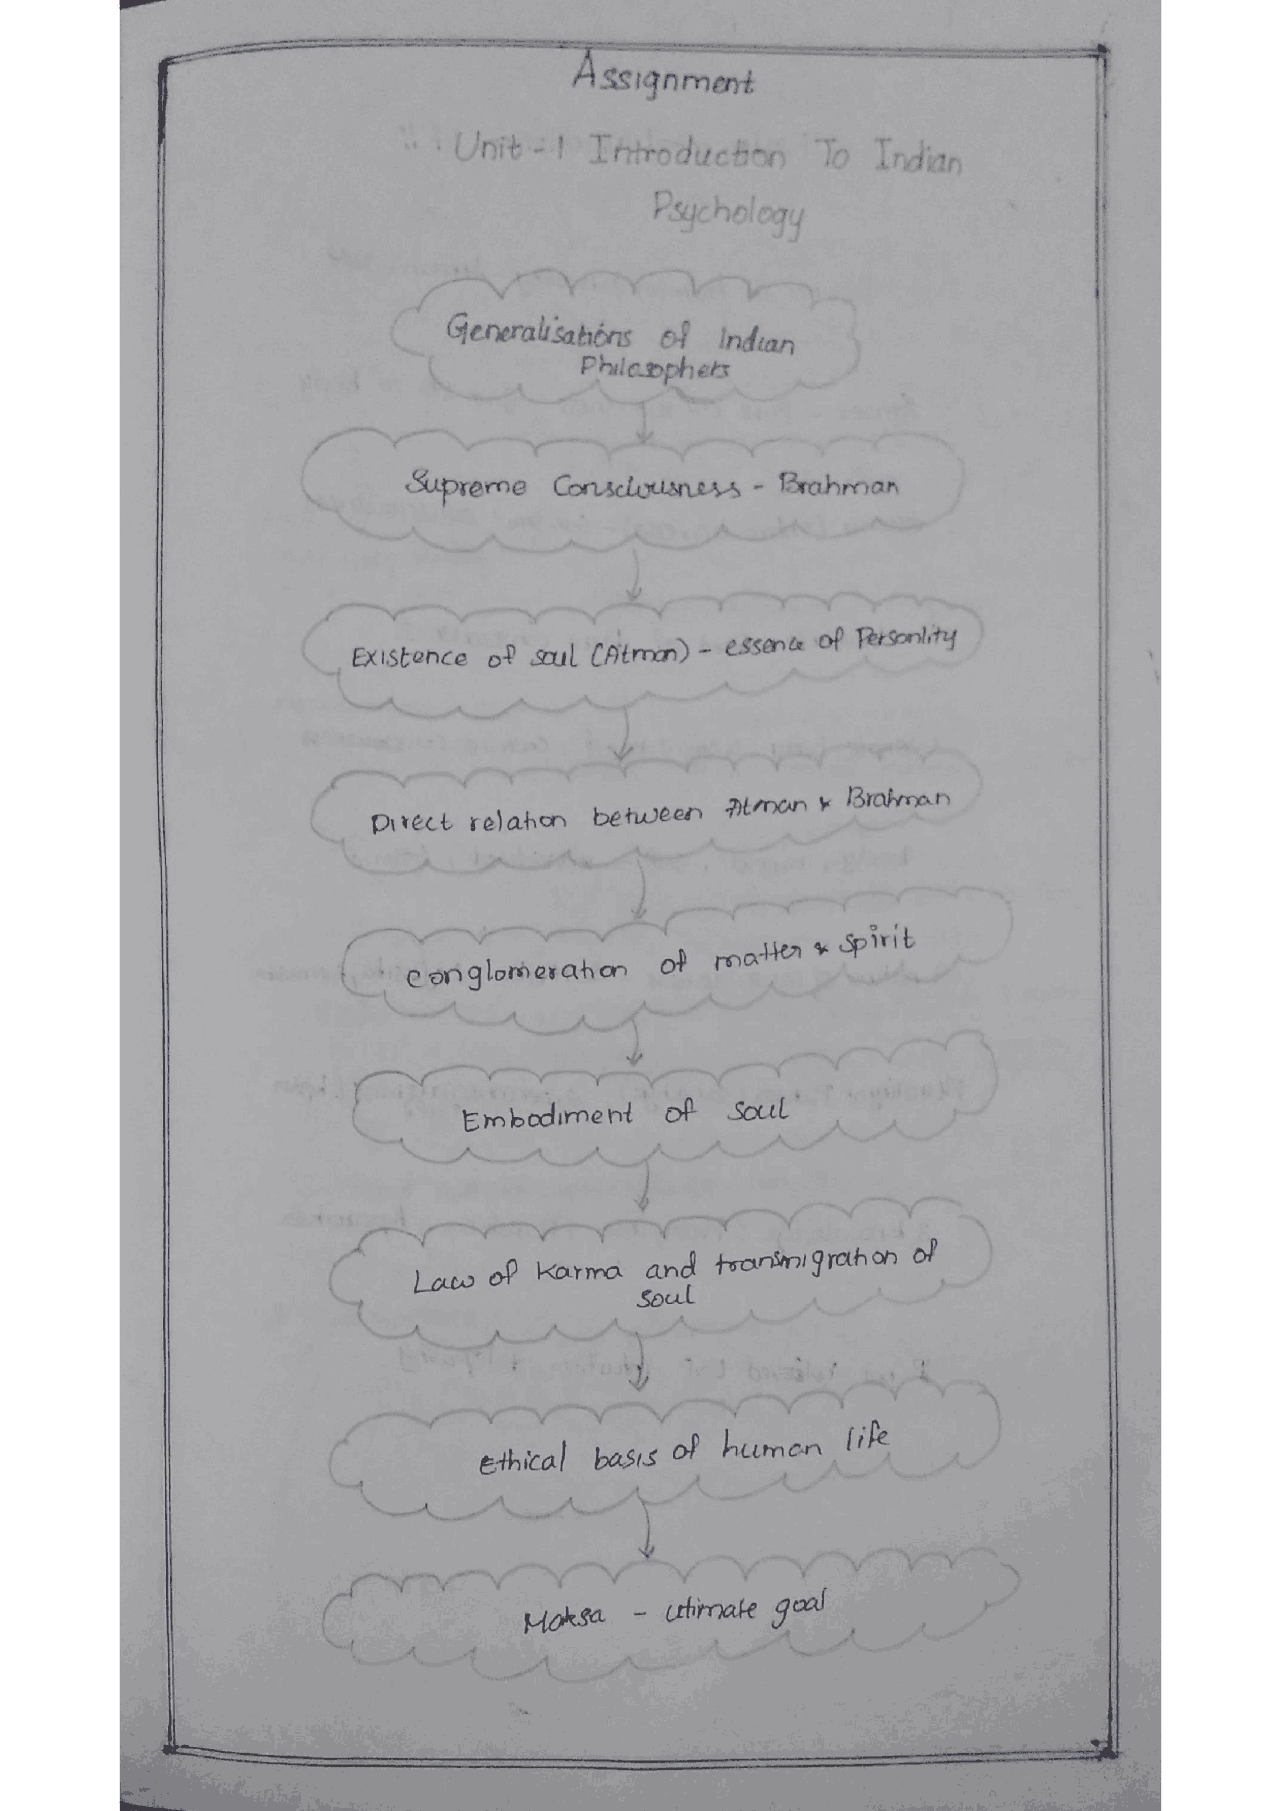 Assignment
Unit - 1 Introduction To Indian
Psychology
Generalisations of Indian
Philosophers
Supreme Consciousness - Brahman
Existence of soul (Atman) - essence of Personlity
Direct relation between Atman & Brahman
Conglomeration of matter & spirit
Embodiment of soul
Law of Karma and transmigration of
soul
Ethical basis of human life
Moksa - utimate goal